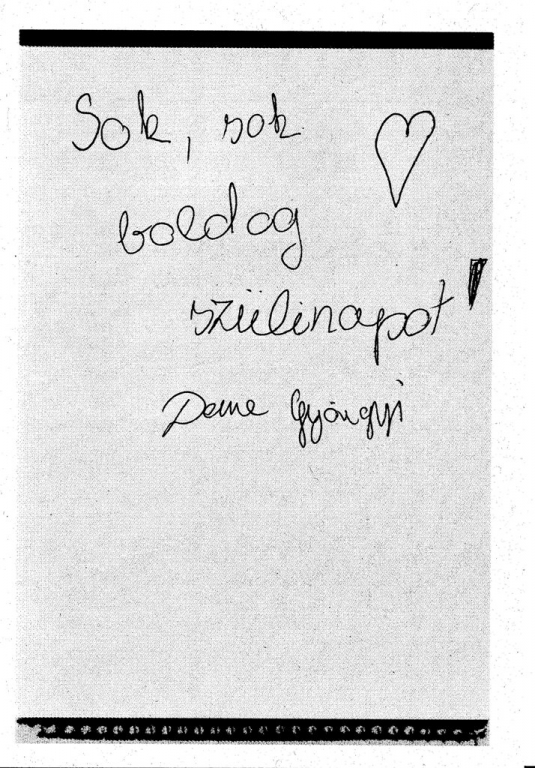 Sok, sok
boldog
szülinapot!
Deme Gyöngyi